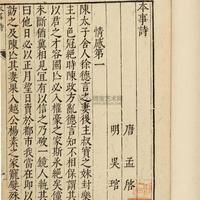 本事詩
唐 孟啓
明 吳琯
情感第一
陳太子舍人徐德言之妻後主叔寶之妹封樂
主才色冠絕時陳政方亂德言知不相保謂其
以君之才容國亡必入權豪之家斯永絕矣儻
未斷猶冀相見宜有以信之乃破鏡執其
曰他日必以正月望日賣於都市我當在
訪之及陳亡其妻果入越公楊素之家寵嬖殊